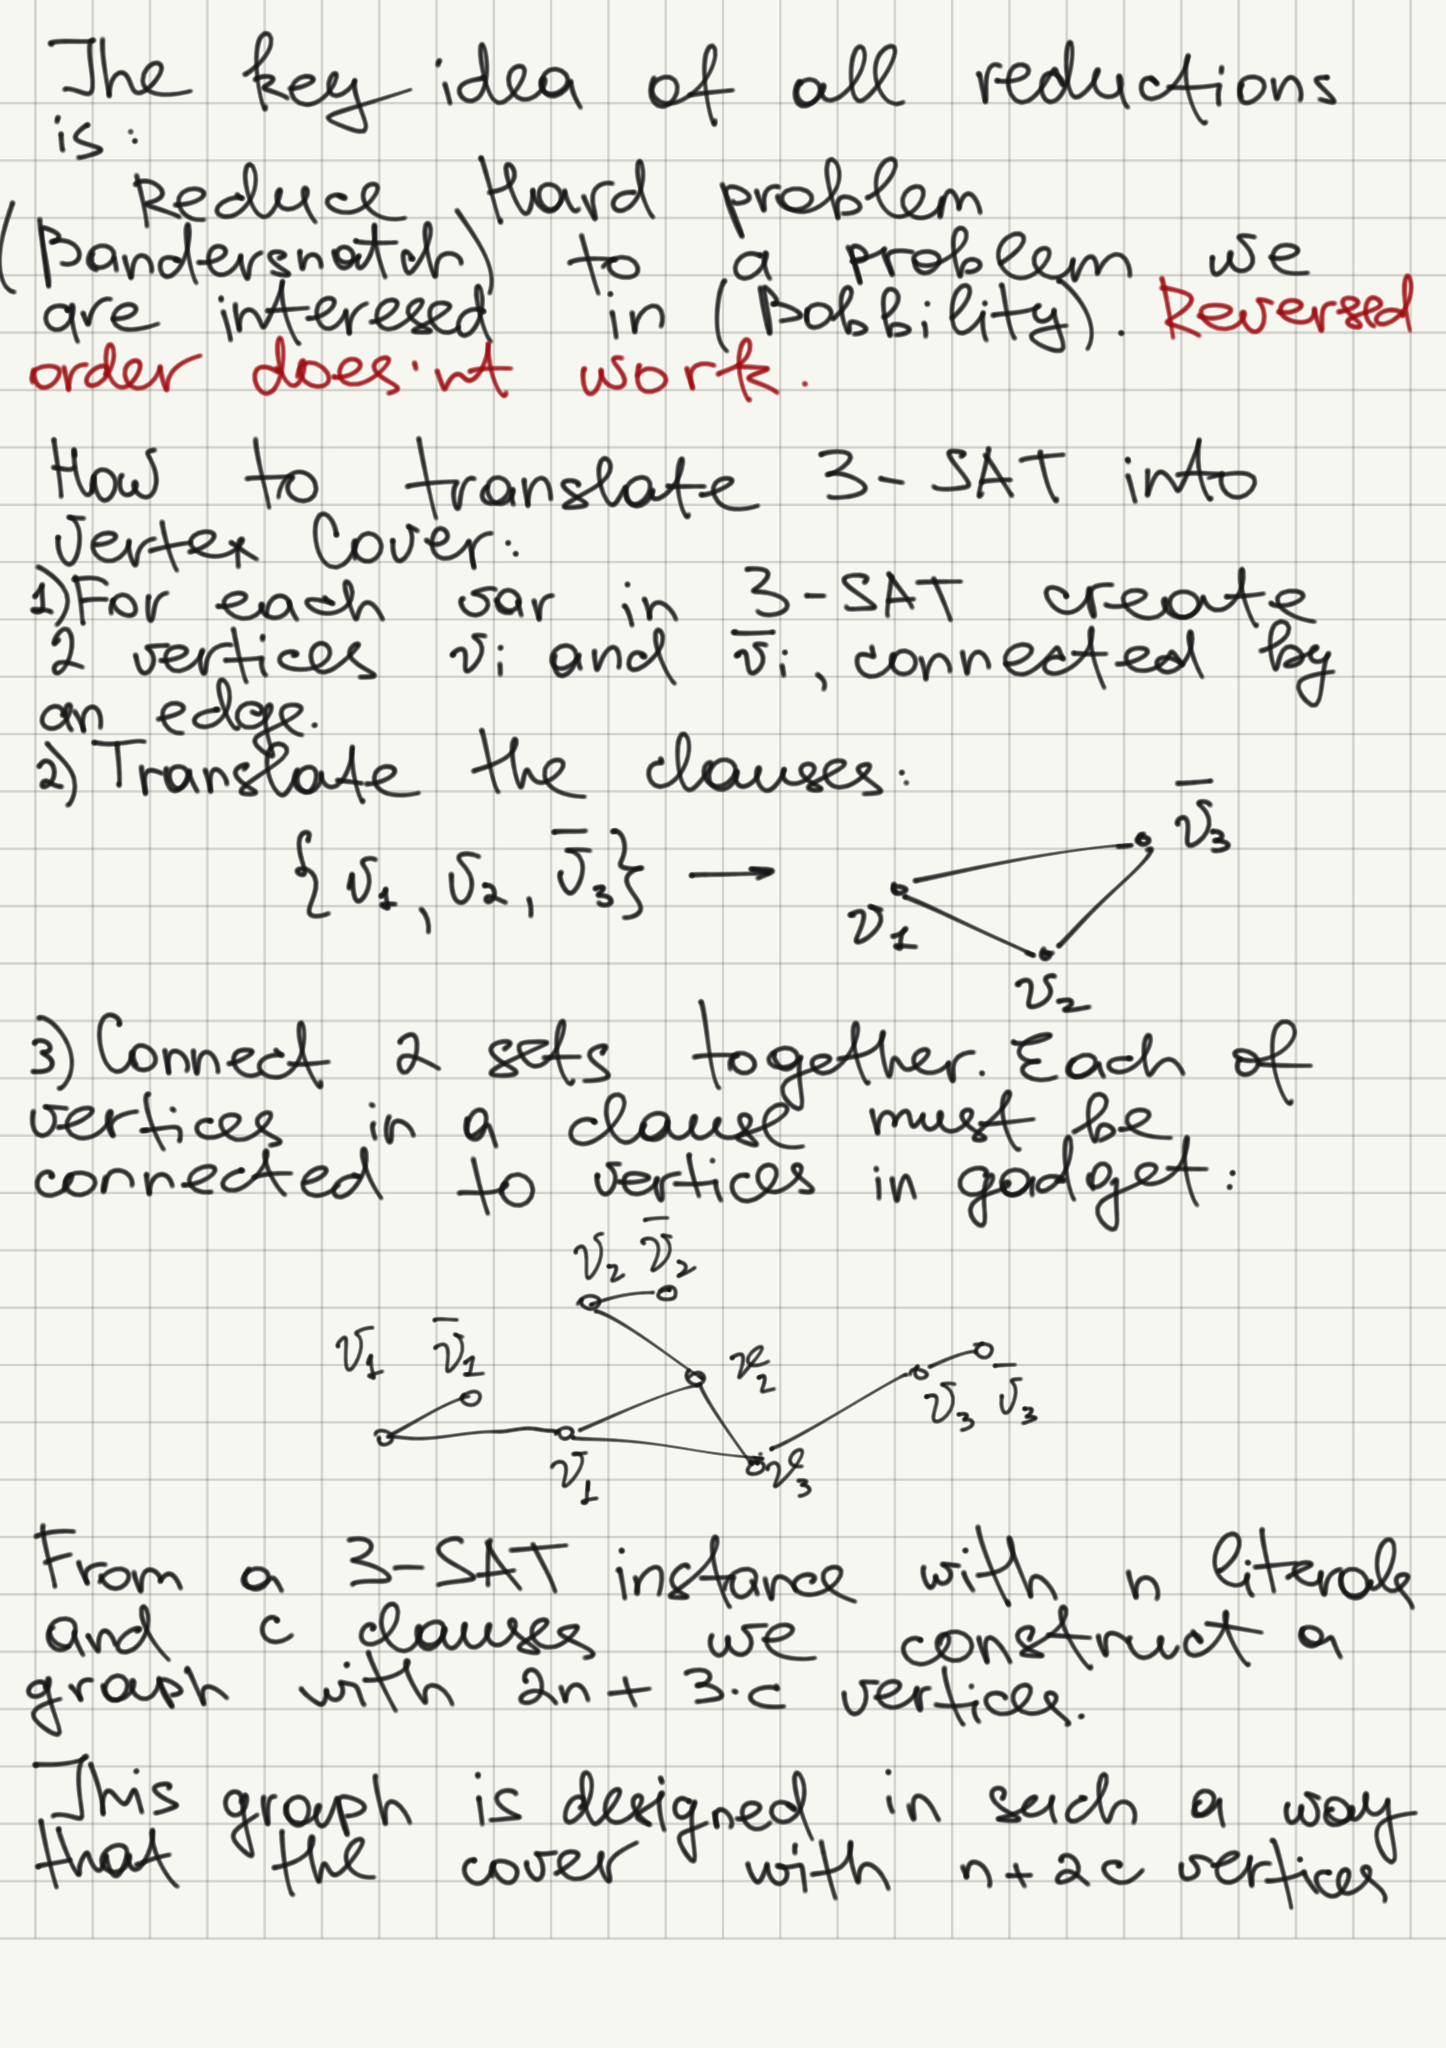 The key idea of all reductions
is:
Reduce Hard problem
(Bandersnatch) to a problem we
are interesed in (Bobbility). Reversed
order does'nt work.
How to translate 3-SAT into
Vertex Cover:
1) For each var in 3-SAT create
2 vertices vi and v̅i, connected by
an edge.
2) Translate the clauses:
v̅3
{v1, v2, v̅3} →
v1
v2
3) Connect 2 sets together. Each of
vertices in a clause must be
connected to vertices in gadget:
v2 v̅2
v1 v̅1
v2
v3 v̅3
v1
v3
From a 3-SAT instance with n literals
and c clauses we construct a
graph with 2n + 3·c vertices.
This graph is designed in such a way
that the cover with n + 2c vertices